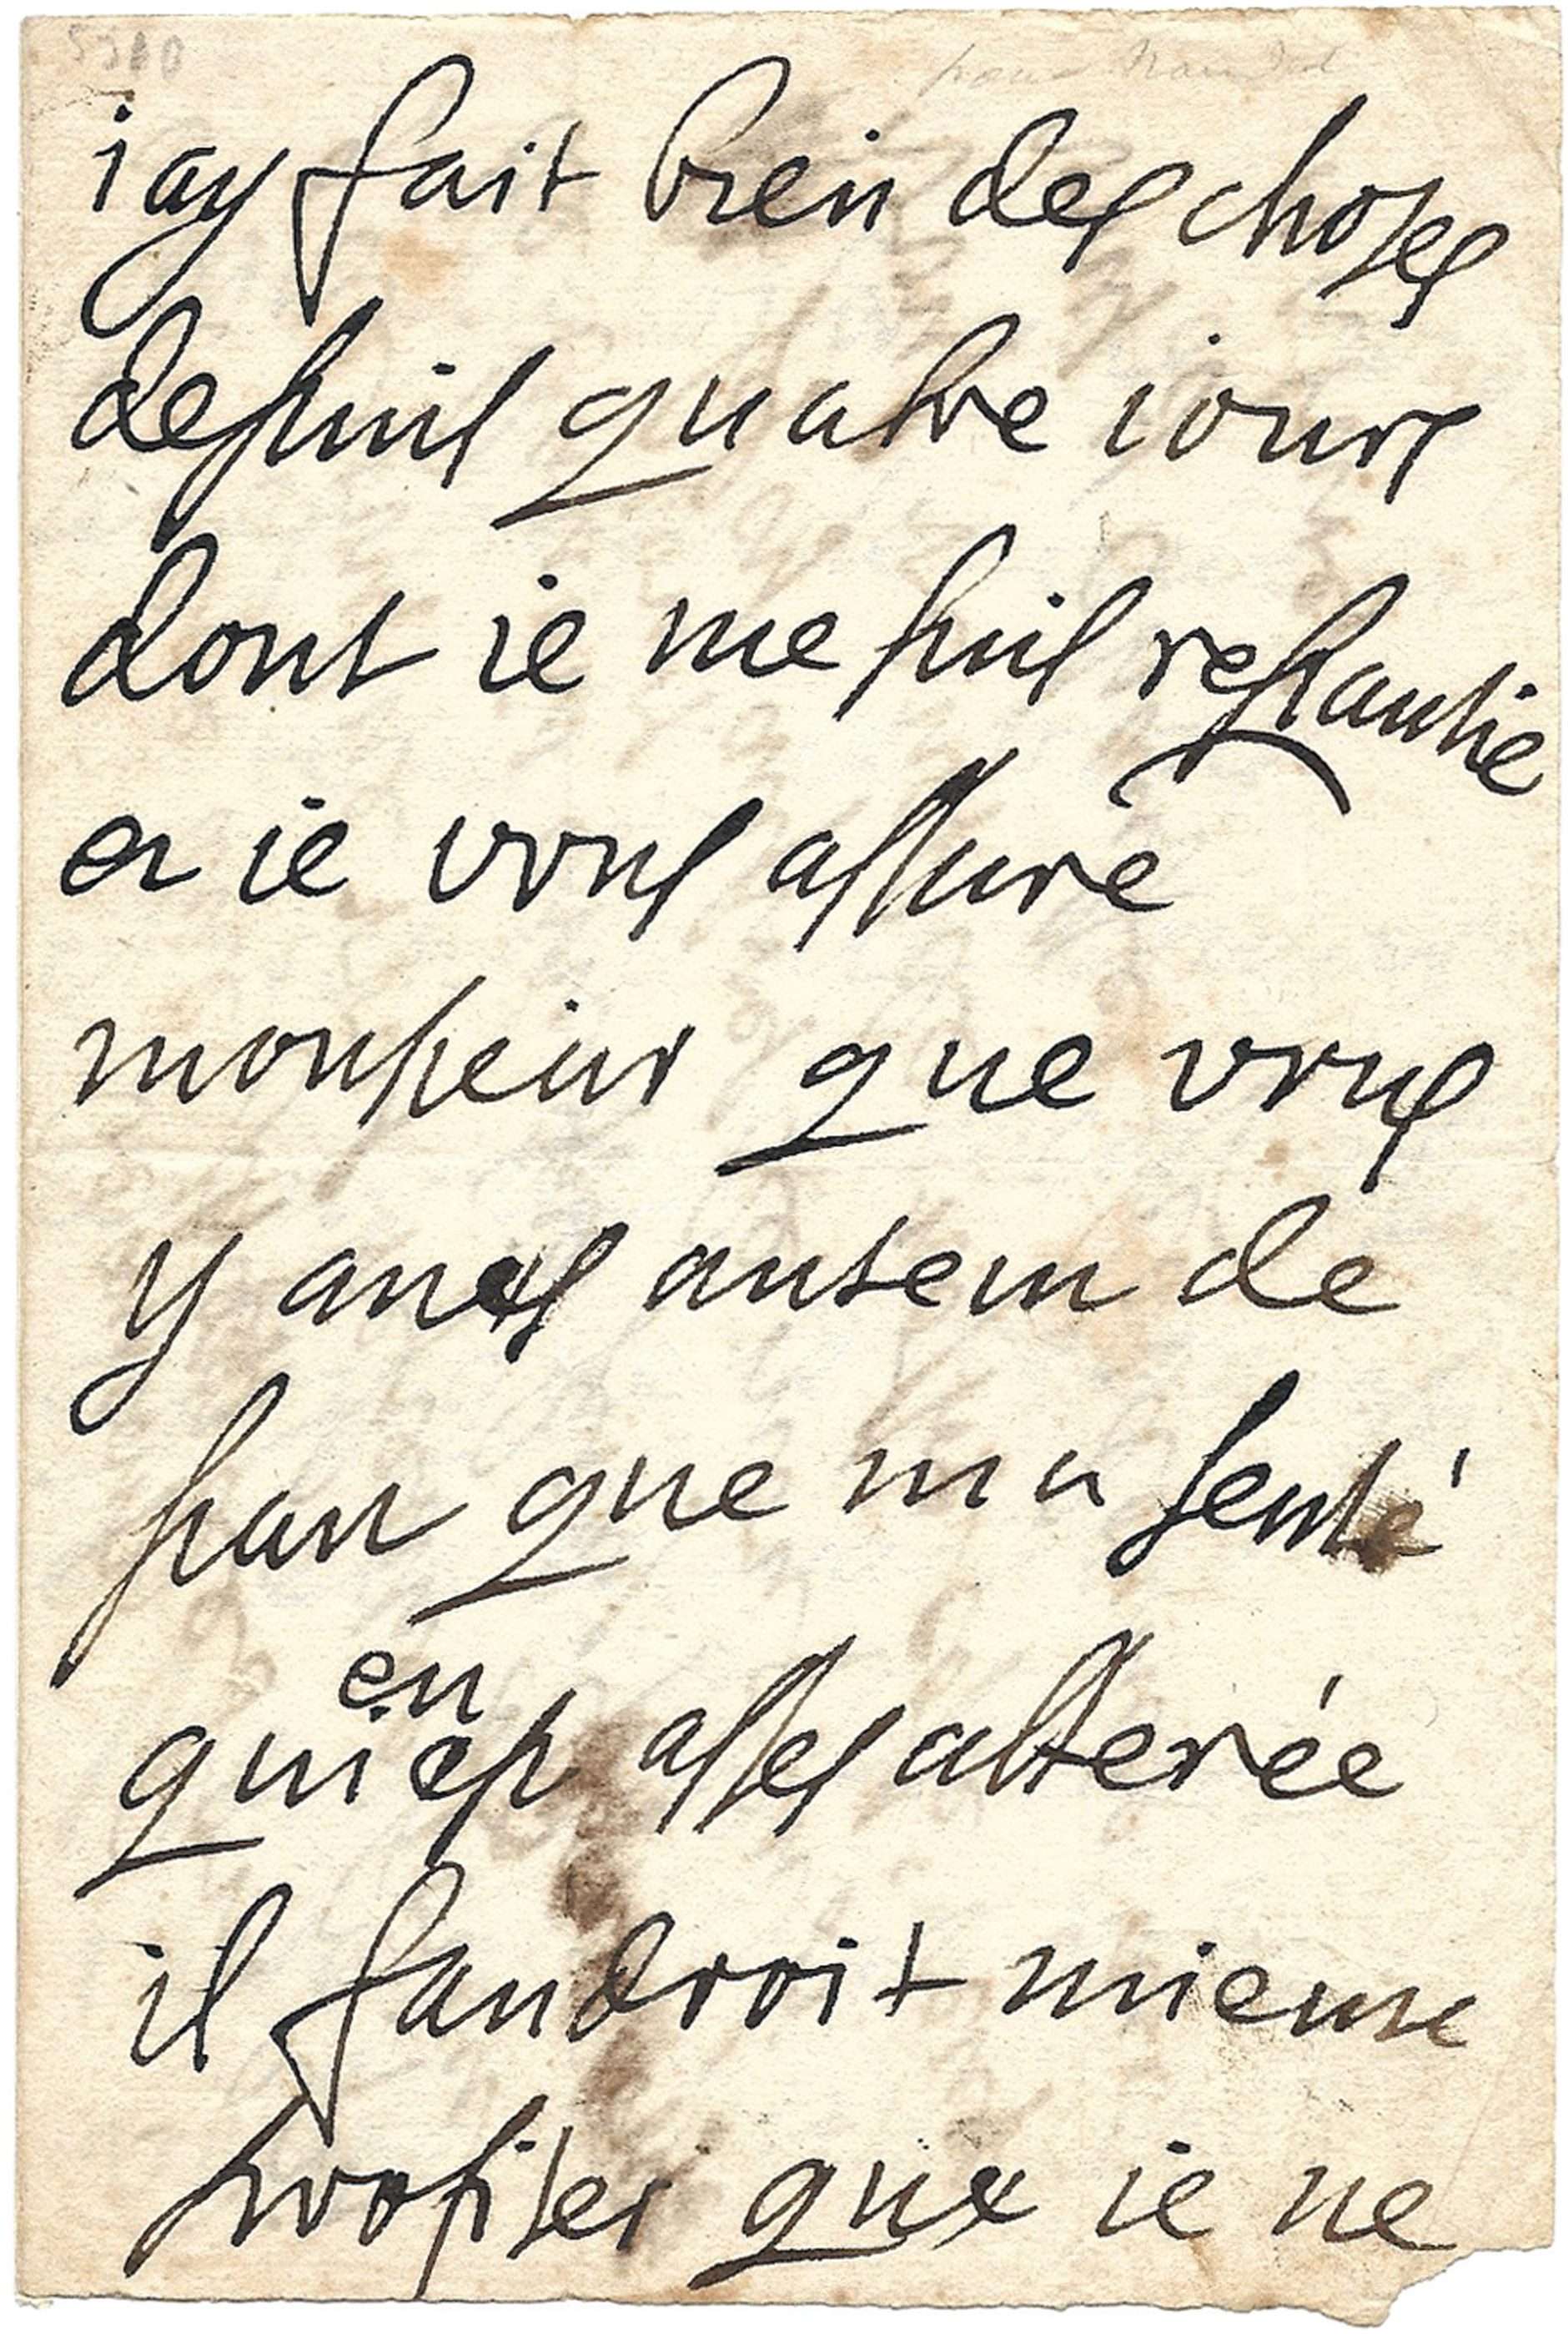 iay fait bien des choses
depuis quatre iours
dont ie me suis repantie
et ie vous assure
monsieur que vous
y aues autem de
part que ma senté
en
qui est asses altterée
il faudroit mieux
profiter que ie ne